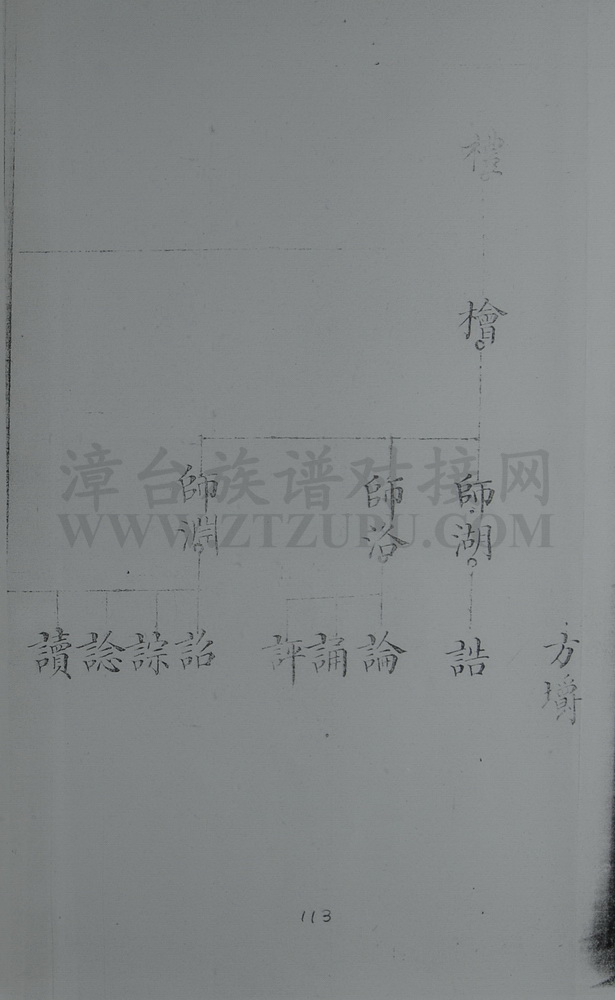 禮
檜
師湖
師浴
師淵
方
誥
論
誦
評
詔
諒
諗
讀
漳台族谱对接网
WWW.ZTZUPU.COM
113